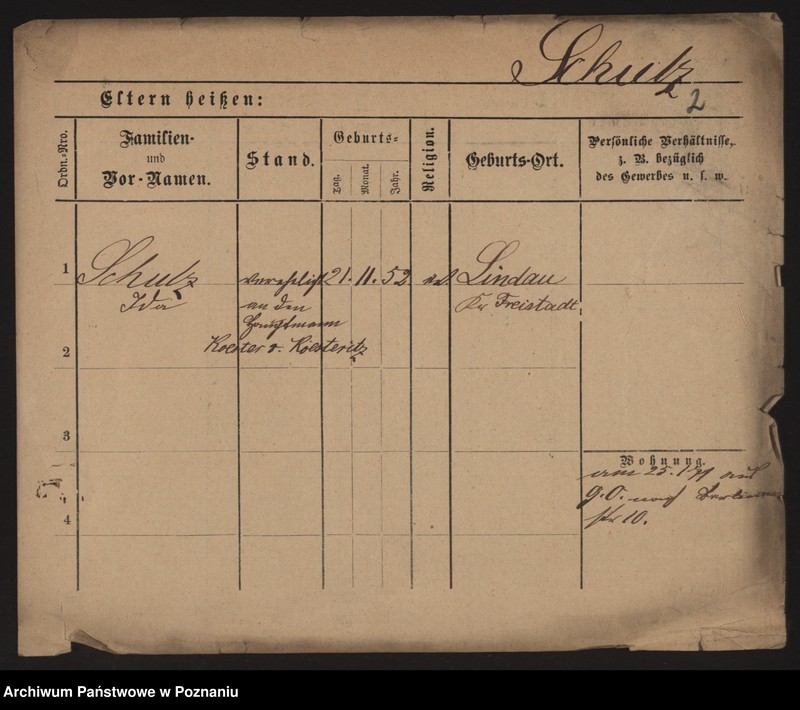 Schulz
2
Eltern heißen:
Ordn.-Nro.
Familien-
und
Vor-Namen.
Stand.
Geburts-
Tag.
Monat.
Jahr.
Religion.
Geburts-Ort.
Persönliche Verhältnisse,
z. B. bezüglich
des Gewerbes u. s. w.
1
Schulz verehelicht 21. 11. 52 Lindau
Ida an den Kr Freistadt.
Hauptmann
2
Koester v. Koesteritz
3
Wohnung.
am 25. 1 91 aus
G. O. nach Berliner
str 10.
4
Archiwum Państwowe w Poznaniu